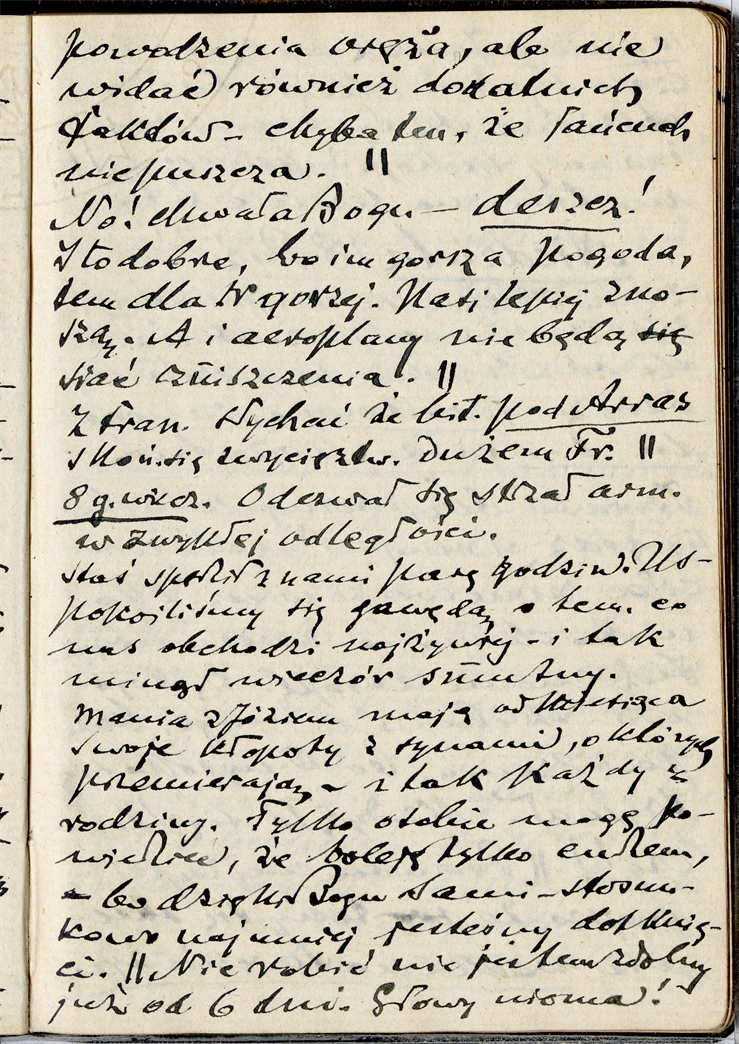 powodzenia oręża, ale nie
widać również dodatnich
faktów – chyba ten, że łańcuch
nie puszcza. ||
No! chwała Bogu – deszcz!
I to dobre, bo im gorsza pogoda,
tem dla N gorzej. Nasi lepiej zno-
szą. A i aeroplany nie będą się
siać zniszczenia. ||
Z fran. słychać że bit. pod Arras
skoń. się zwycięztw. Dużem Fr. ||
8 g. wiecz. Odezwał się strzał arm.
w zwykłej odległości.
Staś spędził z nami parę godzin. Us-
pokoiliśmy się gawędą o tem, co
nas obchodzi najżywiej – i tak
minął wieczór smutny.
Mania z Józiem mają od miesiąca
swoje kłopoty z synami, o których
przemierają – i tak każdy z
rodziny. Tylko o sobie mogę po-
wiedzieć, że boleję tylko cudzem,
– bo dzięki Bogu sami – stosun-
kowo najmniej jesteśmy dotknię-
ci. || Nic robić nie jestem zdolny
już od 6 dni. Głowy niema!